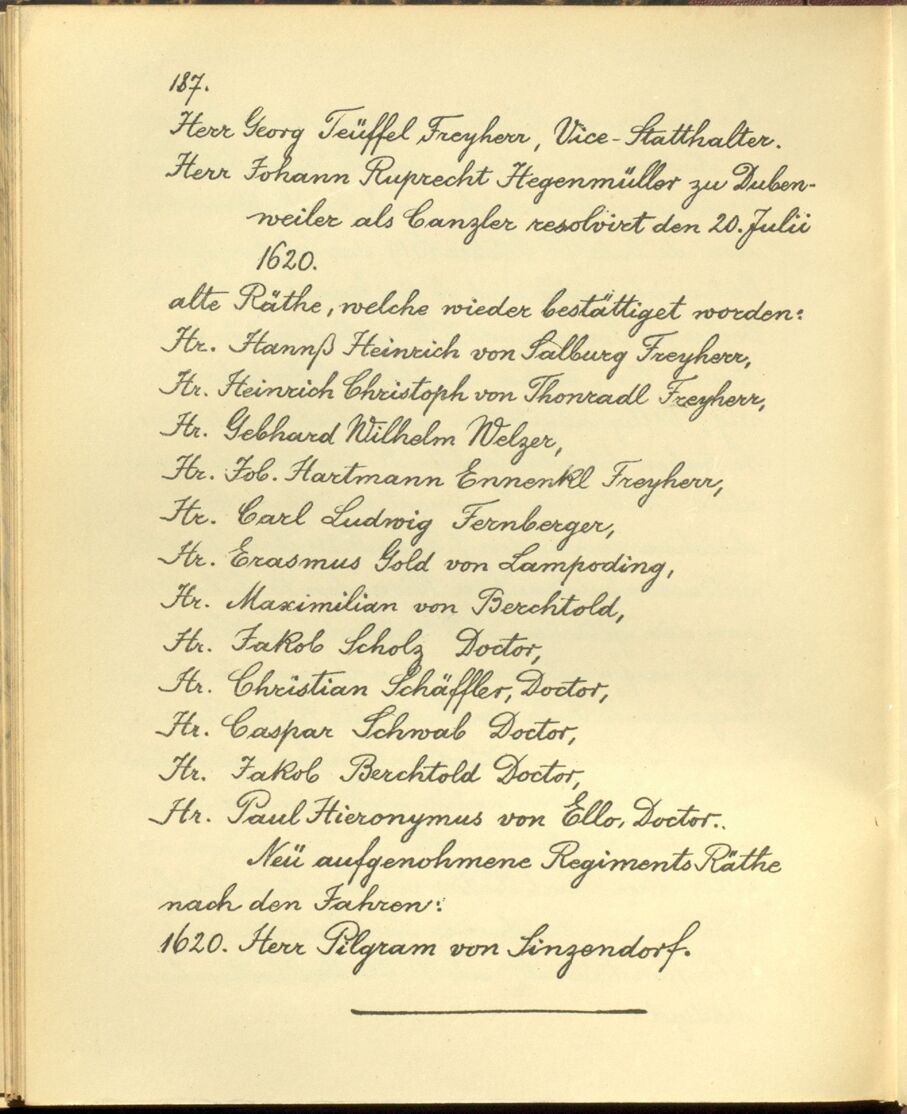 187.
Herr Georg Teüffel Freyherr, Vice-Statthalter.
Herr Johann Ruprecht Hegenmüller zu Duben-
weiler als Canzler resolvirt den 20. Julii
1620.
alte Räthe, welche wieder bestättiget worden:
Hr. Hannß Heinrich von Salburg Freyherr,
Hr. Heinrich Christoph von Thonradl Freyherr,
Hr. Gebhard Wilhelm Welzer,
Hr. Job. Hartmann Ennenkl Freyherr,
Hr. Carl Ludwig Fernberger,
Hr. Erasmus Gold von Lampoding,
Hr. Maximilian von Berchtold,
Hr. Jakob Scholz Doctor,
Hr. Christian Schäffler, Doctor,
Hr. Caspar Schwab Doctor,
Hr. Jakob Berchtold Doctor,
Hr. Paul Hieronymus von Ello, Doctor.
Neü aufgenohmene Regiments Räthe
nach den Jahren:
1620. Herr Pilgram von Sinzendorf.